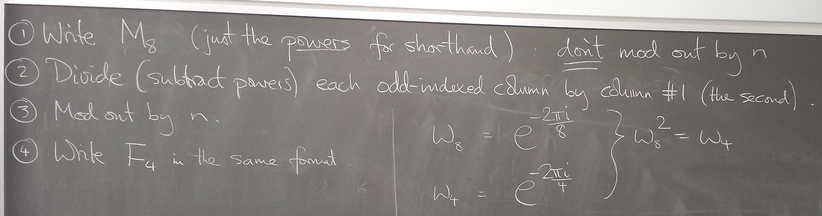 ① Write M₈ (just the powers for shorthand) : don't mod out by n
② Divide (subtract powers) each odd-indexed column by column #1 (the second).
③ Mod out by n.
④ Write F₄ in the same format.
ω₈ = e^(-2πi/8)
ω₄ = e^(-2πi/4)
} ω₈² = ω₄